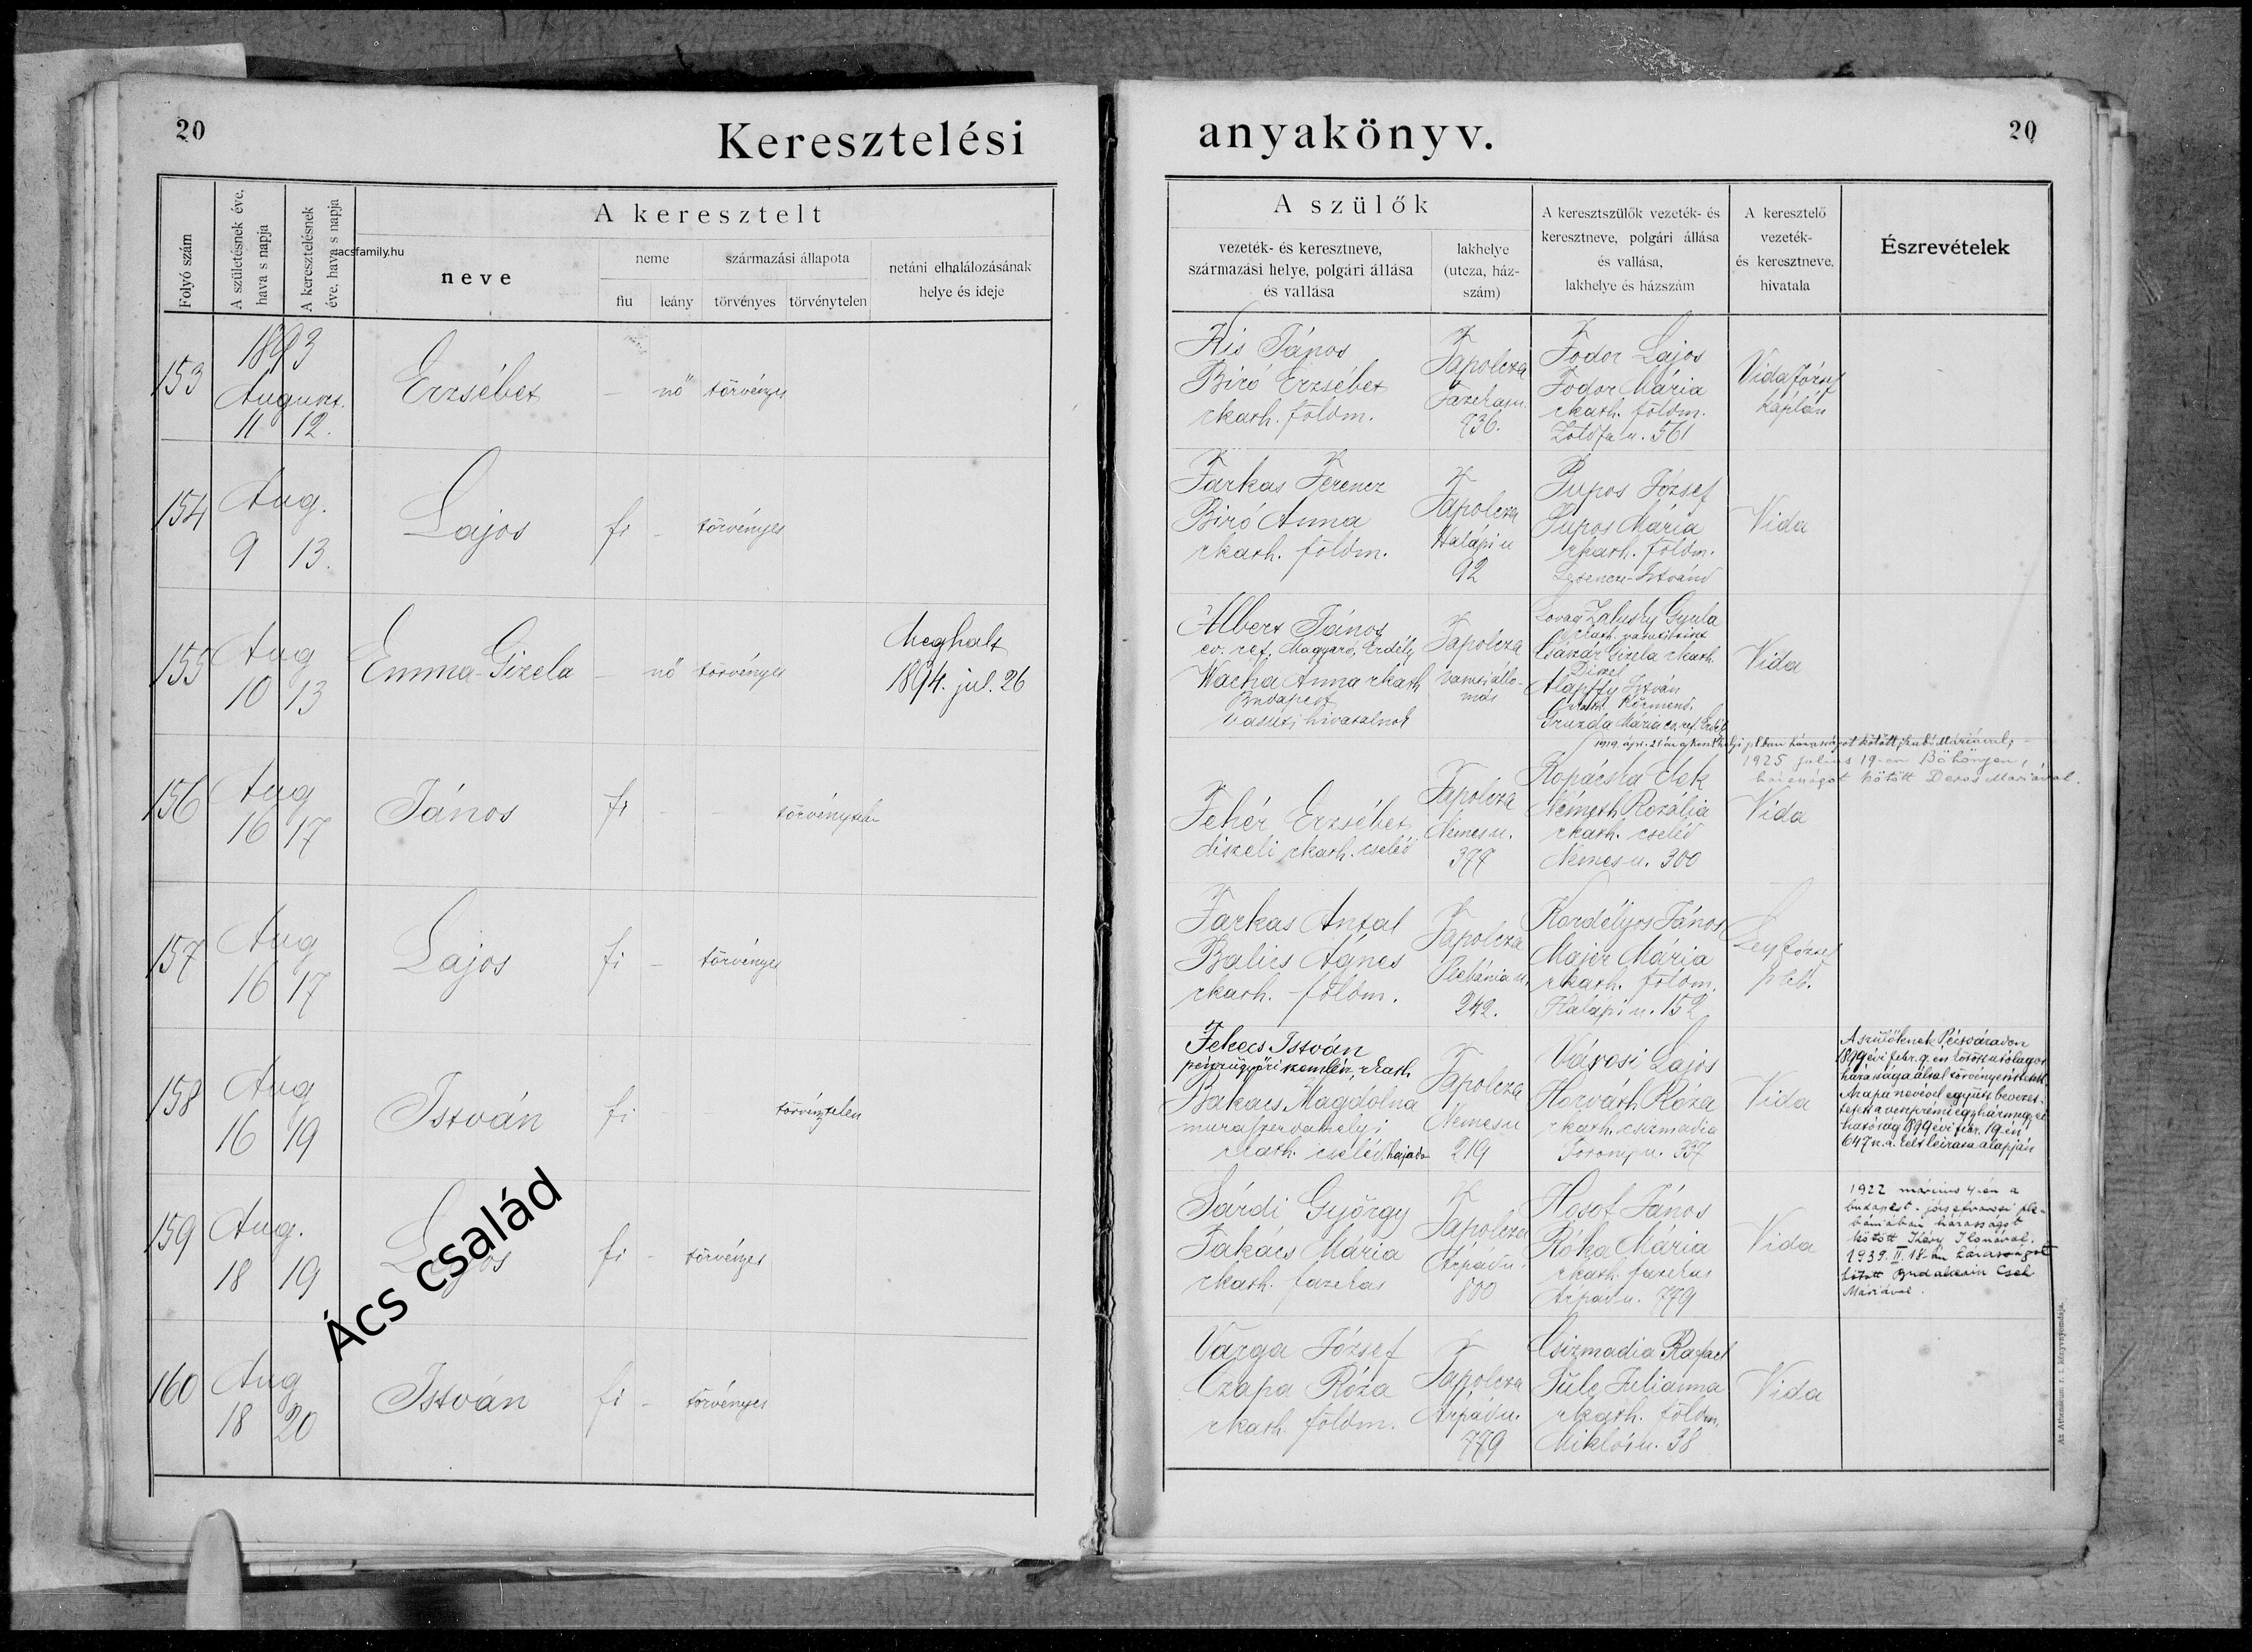 20
Keresztelési
anyakönyv.
20
Folyó szám
A születésnek éve, hava s napja
A keresztelésnek éve, hava s napja
A keresztelt
neve
neme
fiu
leány
származási állapota
törvényes
törvénytelen
netáni elhalálozásának
helye és ideje
A szülők
vezeték- és keresztneve,
származási helye, polgári állása
és vallása
lakhelye
(utcza, ház-
szám)
A keresztszülők vezeték- és
keresztneve, polgári állása
és vallása,
lakhelye és házszám
A keresztelő
vezeték-
és keresztneve,
hivatala
Észrevételek
acsfamily.hu
153
1893
August.
11 12.
Erzsébet
– nő törvényes
Kis János
Biró Erzsébet
rkath. földm.
Tapolcza
736.
Fodor Lajos
Fodor Mária
rkath. földm.
Zöldfa u. 561
Vida József
káplán
154
Aug.
9 13.
Lajos
fi – törvényes
Farkas Ferencz
Biró Anna
rkath. földm.
Tapolcza
Halápi u
92
Pupos József
Pupos Mária
rkath. földm.
Vida
155
Aug
10 13
Emma-Gizela
– nő törvényes
Meghalt
1894. jul. 26
Albert János
ev. ref. Magyaró, Erdély
Wacha Anna rkath
Budapest
vasuti hivatalnok
Tapolcza
vasutállo-
más
Lovag Zalusky Gyula
Császár Gizela rkath.
Diszel
István
Körmend.
Vida
156
Aug
16 17
János
fi – – törvénytelen
Fehér Erzsébet
diszeli rkath. cseléd
Tapolcza
Nemes u.
377
Kopácska Elek
Németh Rozália
rkath. cseléd
Nemes u. 300
Vida
1925 julius 19-en Böhönyen,
házasságot kötött Máriával.
157
Aug
16 17
Lajos
fi – törvényes
Farkas Antal
Balics Ágnes
rkath. földm.
Tapolcza
Plébánia u.
242.
Kardélyos János
Majer Mária
rkath. földm.
Halápi u. 152
Ley József
pléb.
158
Aug
16 19
István
fi
törvénytelen
Fekecs István
pénzügyőri szemlész, rkath
Bakács Magdolna
muraszerdahelyi
rkath. cseléd, hajadon
Tapolcza
Nemes u
219
Városi Lajos
Horváth Róza
rkath. csizmadia
Torony u. 337
Vida
A szülőknek Pécsváradon
1899 évi febr. 9. én kötött utólagos
házassága által törvényesíttetett.
Az apa nevével együtt bevezet-
tetett a veszprémi egyházmegyei
hatóság 1899 évi febr. 19-én
647 n.a. kelt leirata alapján
159
Aug.
18 19
Lajos
fi – törvényes
Sárdi György
Takács Mária
rkath. fazekas
Tapolcza
Árpád u.
800
Hosof János
Róka Mária
rkath. fazekas
Árpád u. 779
Vida
1922 március 4-én a
budapest-józsefvárosi plé-
bániában házasságot
kötött Ilonával.
1939. II. 18-án házasságot
kötött
Máriával.
Ács család
160
Aug
18 20
István
fi – törvényes
Varga József
Czapa Róza
rkath. földm.
Tapolcza
Árpád u.
779
Csizmadia Rafael
Süle Julianna
rkath. földm.
Miklós u. 38
Vida
Az Athenaeum r. t. könyvnyomdája.